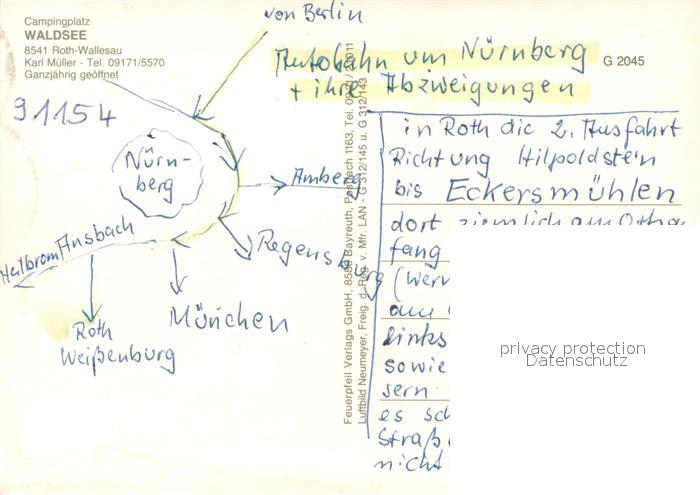 Campingplatz
WALDSEE
8541 Roth-Wallesau
Karl Müller - Tel. 09171/5570
Ganzjährig geöffnet
91154
von Berlin
Autobahn um Nürnberg
+ ihre Abzweigungen
G 2045
Nürn-
berg
Amberg
Regensburg
München
Heilbronn Ansbach
Roth
Weißenburg
Feuerpfeil Verlags GmbH, 8580 Bayreuth, Postfach 1163, Tel.
Luftbild Neumeyer, Freig. d. Reg. v. Mfr. LAN - G 312/145 u. G 312/143
in Roth die 2. Ausfahrt
Richtung Hilpoldstein
bis Eckersmühlen
dort ziemlich am Ortsa
fang
(Wern
aus
links
sowie
sern
es sch
Straß
nicht
privacy protection
Datenschutz